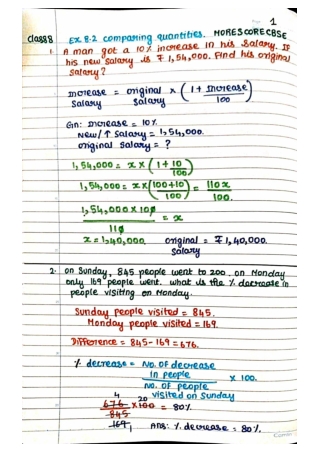 1
class 8 Ex 8.2 comparing quantities. MORESCORECBSE
1. A man got a 10% increase in his Salary. If
his new salary is ₹ 1,54,000. Find his original
salary?
increase = original × (1 + increase/100)
salary salary
Gn: increase = 10%
New/↑ salary = 1,54,000.
original salary = ?
1,54,000 = x × (1 + 10/100)
1,54,000 = x × (100+10/100) = 110x/100.
1,54,000 × 100/110 = x
x = 1,40,000. original = ₹ 1,40,000.
salary
2. on Sunday, 845 people went to zoo, on Monday
only 169 people went. what is the % decrease in
people visiting on Monday.
Sunday people visited = 845.
Monday people visited = 169.
Difference = 845 - 169 = 676.
% decrease = No. of decrease
in people
× 100.
No. of people
visited on Sunday
4 20
676/845 × 100 = 80%
169, Ans: % decrease = 80%.